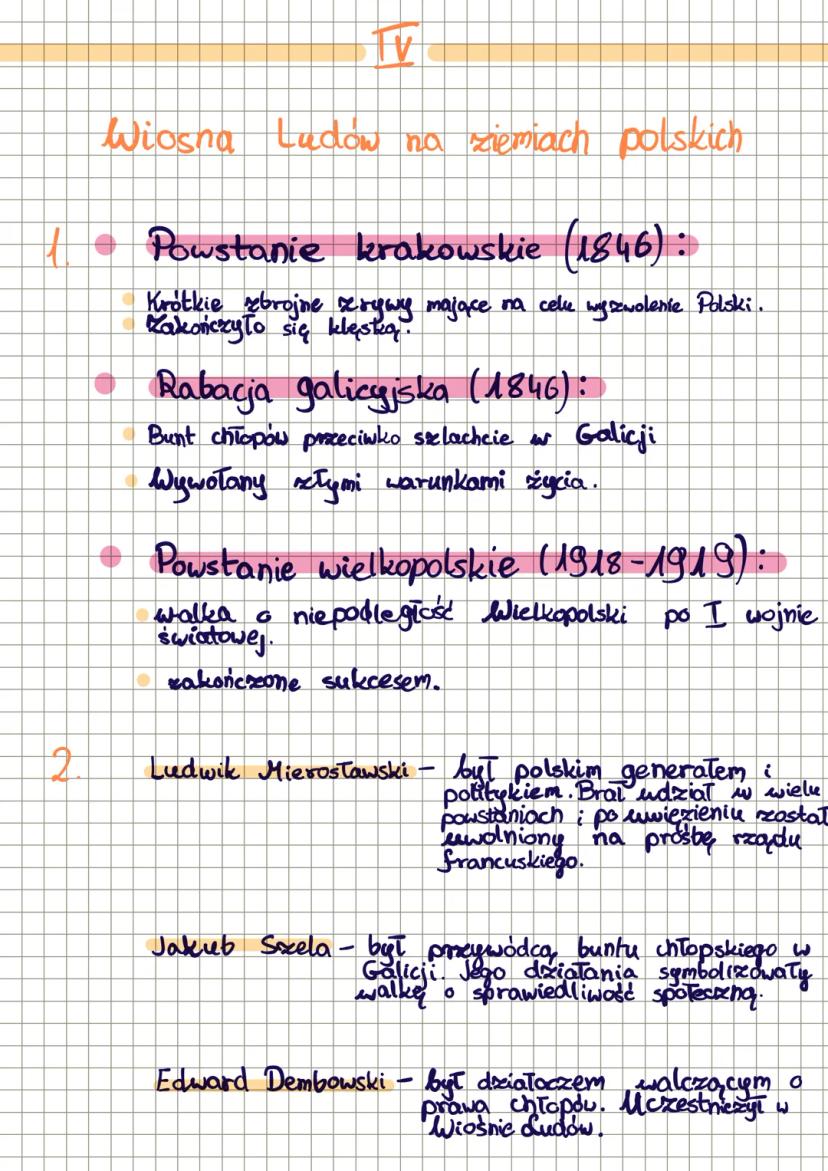 IV
Wiosna Ludów na ziemiach polskich
1. Powstanie krakowskie (1846):
Krótkie zbrojne zrywy mające na celu wyzwolenie Polski.
Zakończyło się klęską.
Rabacja galicyjska (1846):
Bunt chłopów przeciwko szlachcie w Galicji
Wywołany złymi warunkami życia.
Powstanie wielkopolskie (1918-1919):
walka o niepodległość Wielkopolski po I wojnie
światowej.
zakończone sukcesem.
2. Ludwik Mierosławski – był polskim generałem i
politykiem. Brał udział w wielu
powstaniach i po uwięzieniu został
uwolniony na prośbę rządu
francuskiego.
Jakub Szela – był przywódcą buntu chłopskiego w
Galicji. Jego działania symbolizowały
walkę o sprawiedliwość społeczną.
Edward Dembowski – był działaczem walczącym o
prawa chłopów. Uczestniczył w
Wiośnie Ludów.